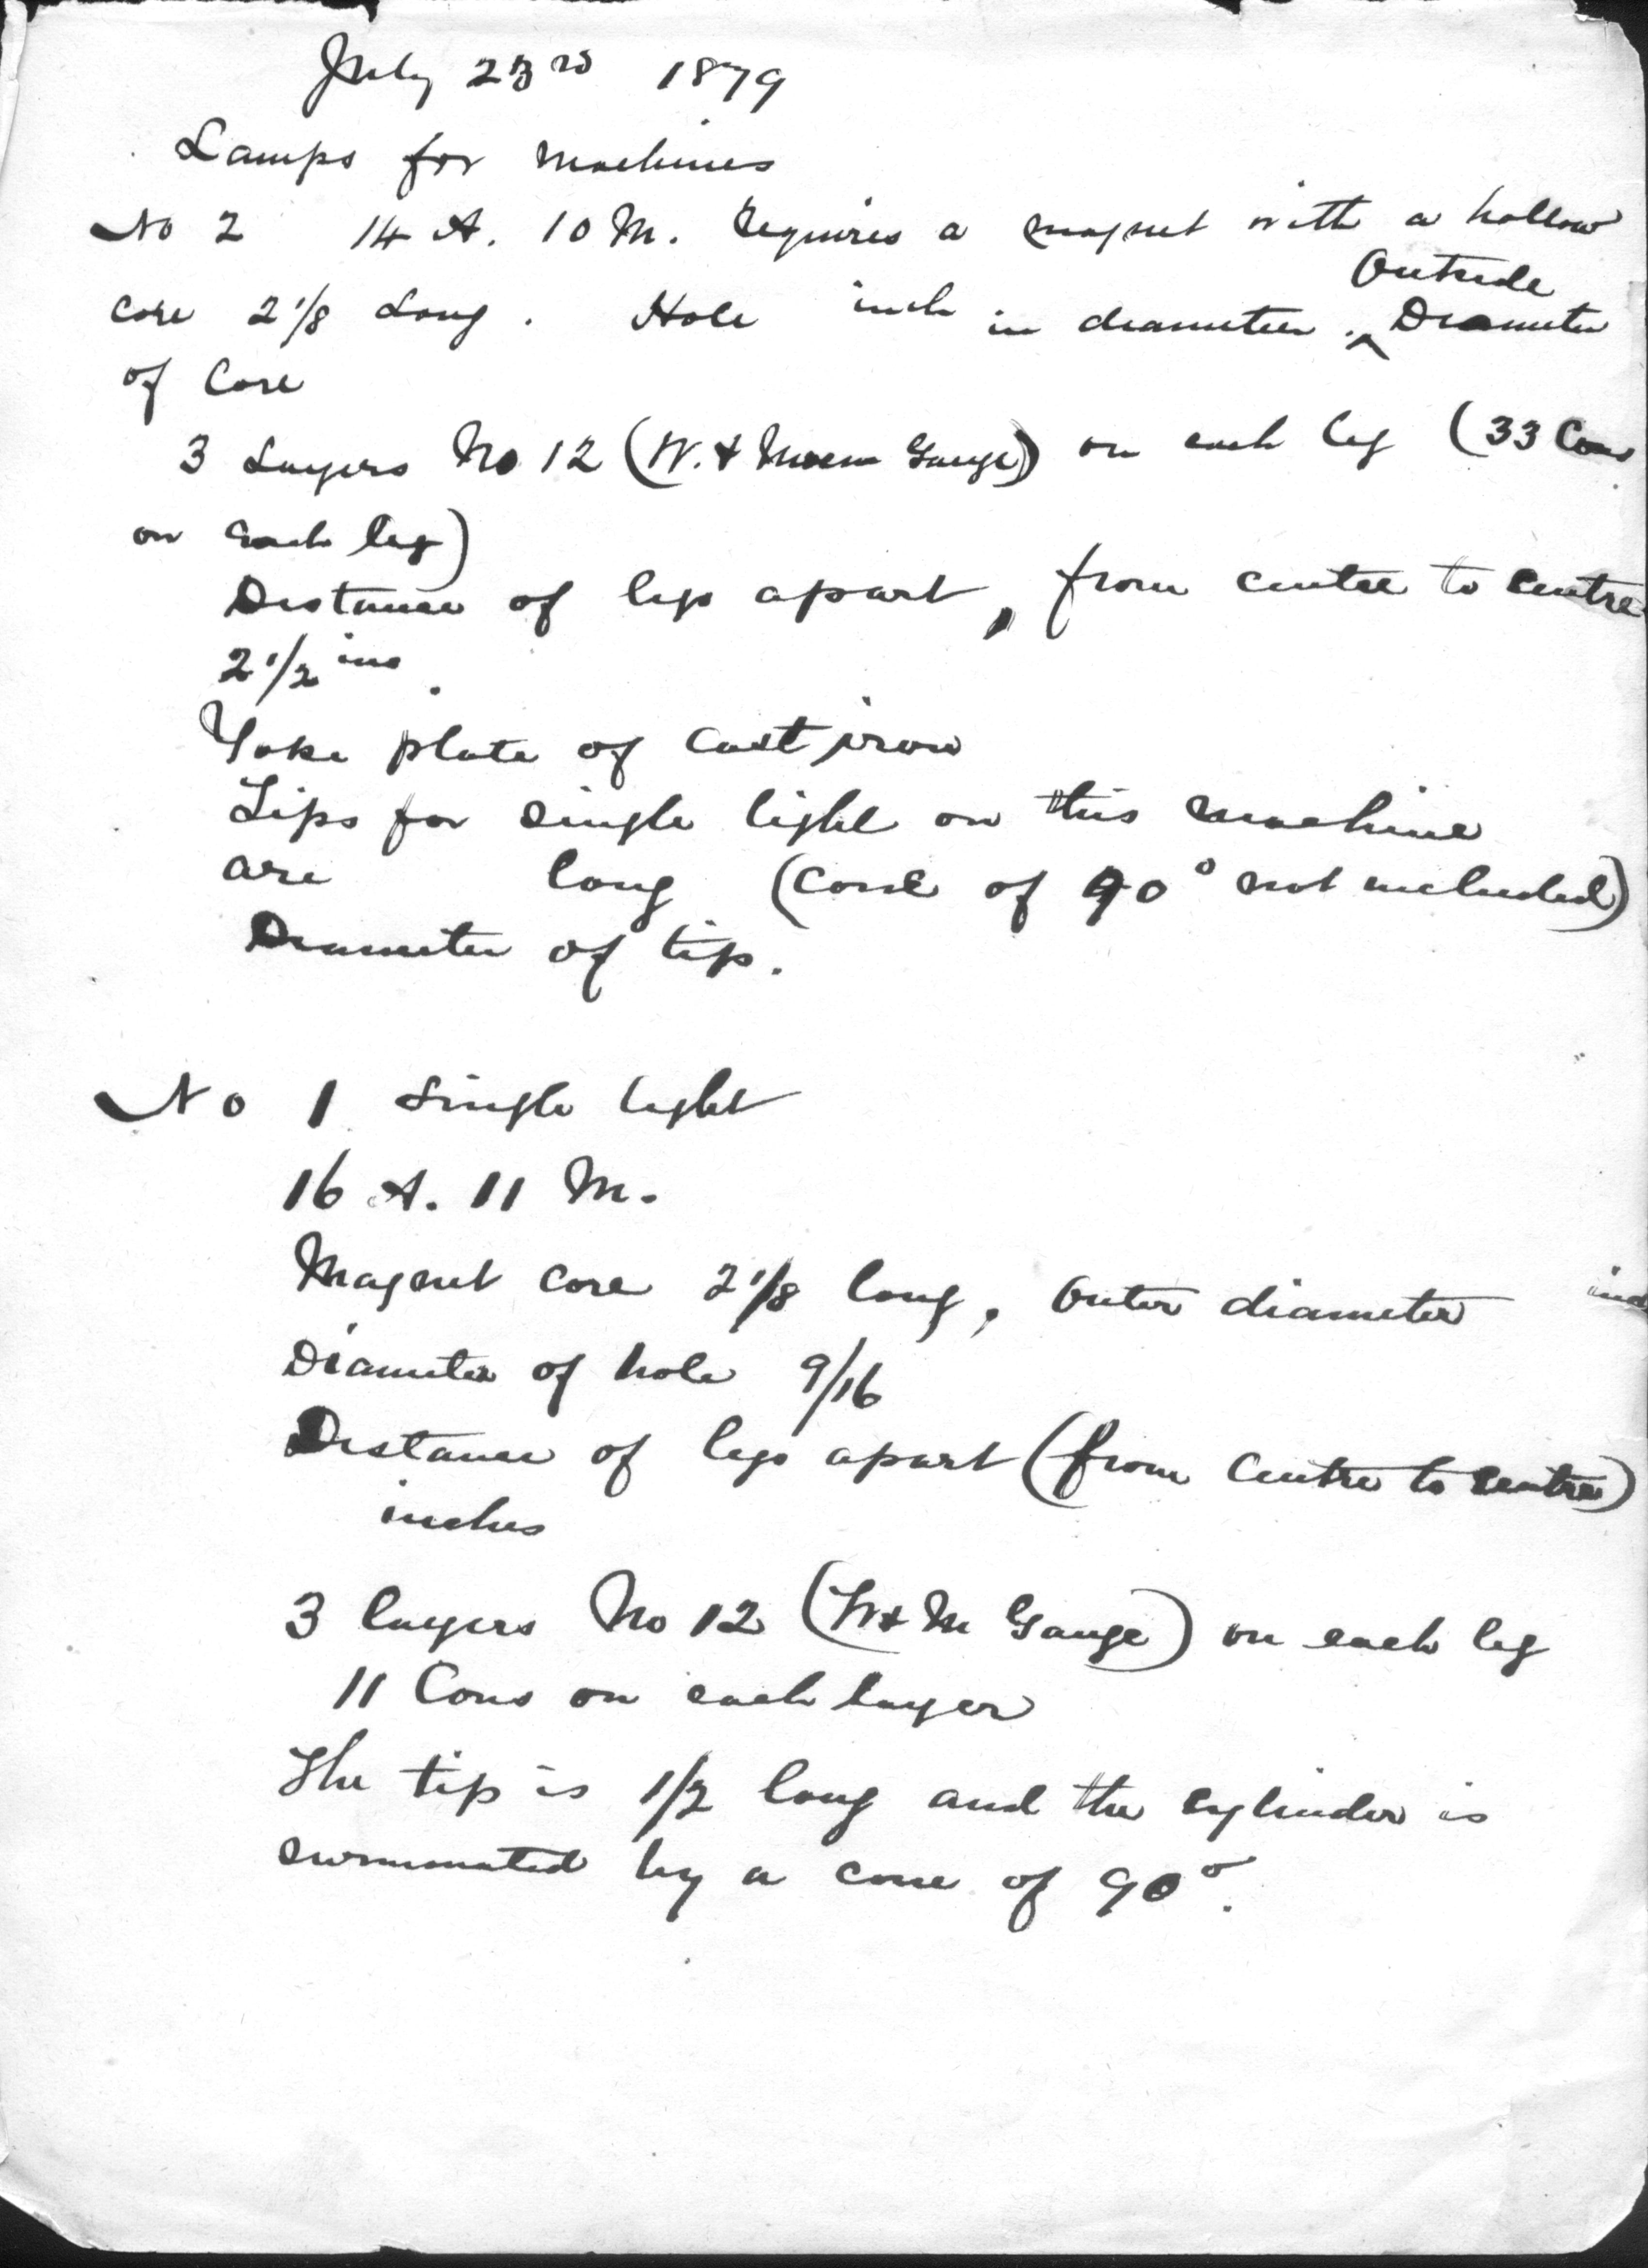 July 23rd 1879
Lamps for machines
No 2 14 A. 10 M. Requires a magnet with a hollow
core 2 1/8 Long. Hole inch in diameter. Outside Diameter
of Core
3 Layers No 12 (W. & Moen Gauge) on each leg (33 Cons
on each leg)
Distance of legs apart, from centre to centre
2 1/2 ins.
Yoke plate of cast iron
Tips for single light on this machine
are long (cone of 90° not included)
Diameter of tip.
No 1 Single light
16 A. 11 M.
Magnet core 2 1/8 long, outer diameter
Diameter of hole 9/16
Distance of legs apart (from centre to centre)
inches
3 layers No 12 (W & M Gauge) on each leg
11 Cons on each layer
The tip is 1/2 long and the cylinder is
surmounted by a cone of 90°.